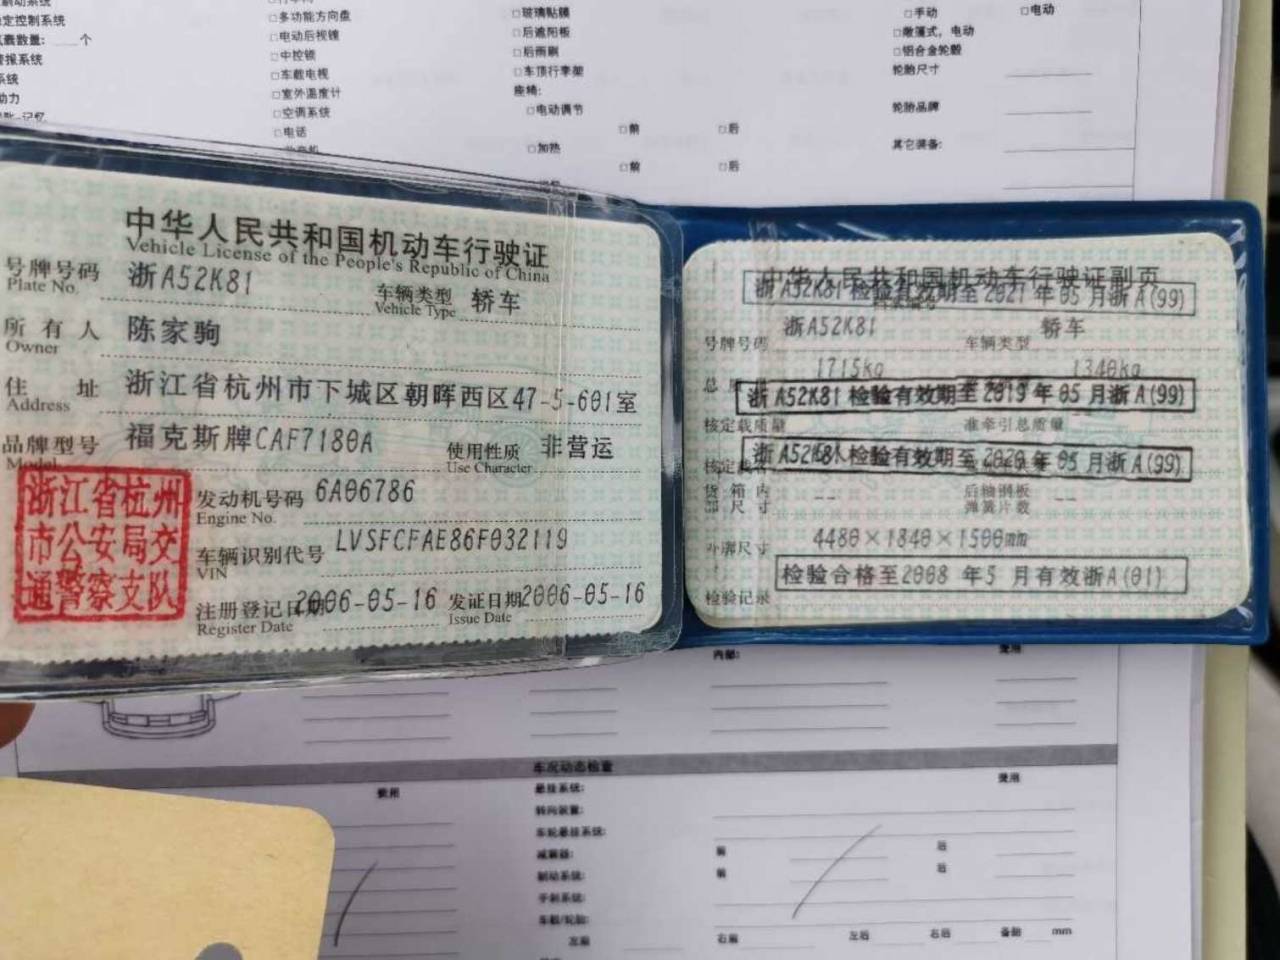 定控制系统
囊数量: 个
警报系统
系统
动力
记忆
□多功能方向盘
□电动后视镜
□中控锁
□车载电视
□室外温度计
□空调系统
□电话
□玻璃贴膜
□后遮阳板
□后雨刷
□车顶行李架
座椅:
□电动调节
□前 □后
□加热
□前 □后
□手动 □电动
□敞篷式，电动
□铝合金轮毂
轮胎尺寸
轮胎品牌
其它装备:
中华人民共和国机动车行驶证
Vehicle License of the People's Republic of China
号牌号码 浙A52K81 车辆类型 轿车
Plate No. Vehicle Type
所有人 陈家驹
Owner
住址 浙江省杭州市下城区朝晖西区47-5-601室
Address
品牌型号 福克斯牌CAF7180A 使用性质 非营运
Model Use Character
浙江省杭州
市公安局交
通警察支队
发动机号码 6A06786
Engine No.
车辆识别代号 LVSFCFAE86F032119
VIN
注册登记日期 2006-05-16 发证日期 2006-05-16
Register Date Issue Date
中华人民共和国机动车行驶证副页
浙A52K81 检验有效期至2021年05月浙A(99)
浙A52K81 轿车
号牌号码 车辆类型
1715kg 1340kg
浙A52K81 检验有效期至2019年05月浙A(99)
核定载质量 准牵引总质量
浙A52K81 检验有效期至2020年05月浙A(99)
货箱内 后轴钢板
部尺寸 -- 弹簧片数 --
外廓尺寸 4480×1840×1500mm
检验合格至2008年5月有效浙A(01)
检验记录
内部: 费用
车况动态检查
费用 费用
悬挂系统:
转向装置:
车轮悬挂系统:
减震器: 前 后
制动系统: 前 后
手刹系统:
车载/轮胎:
左前 右前 左后 右后 备胎 mm